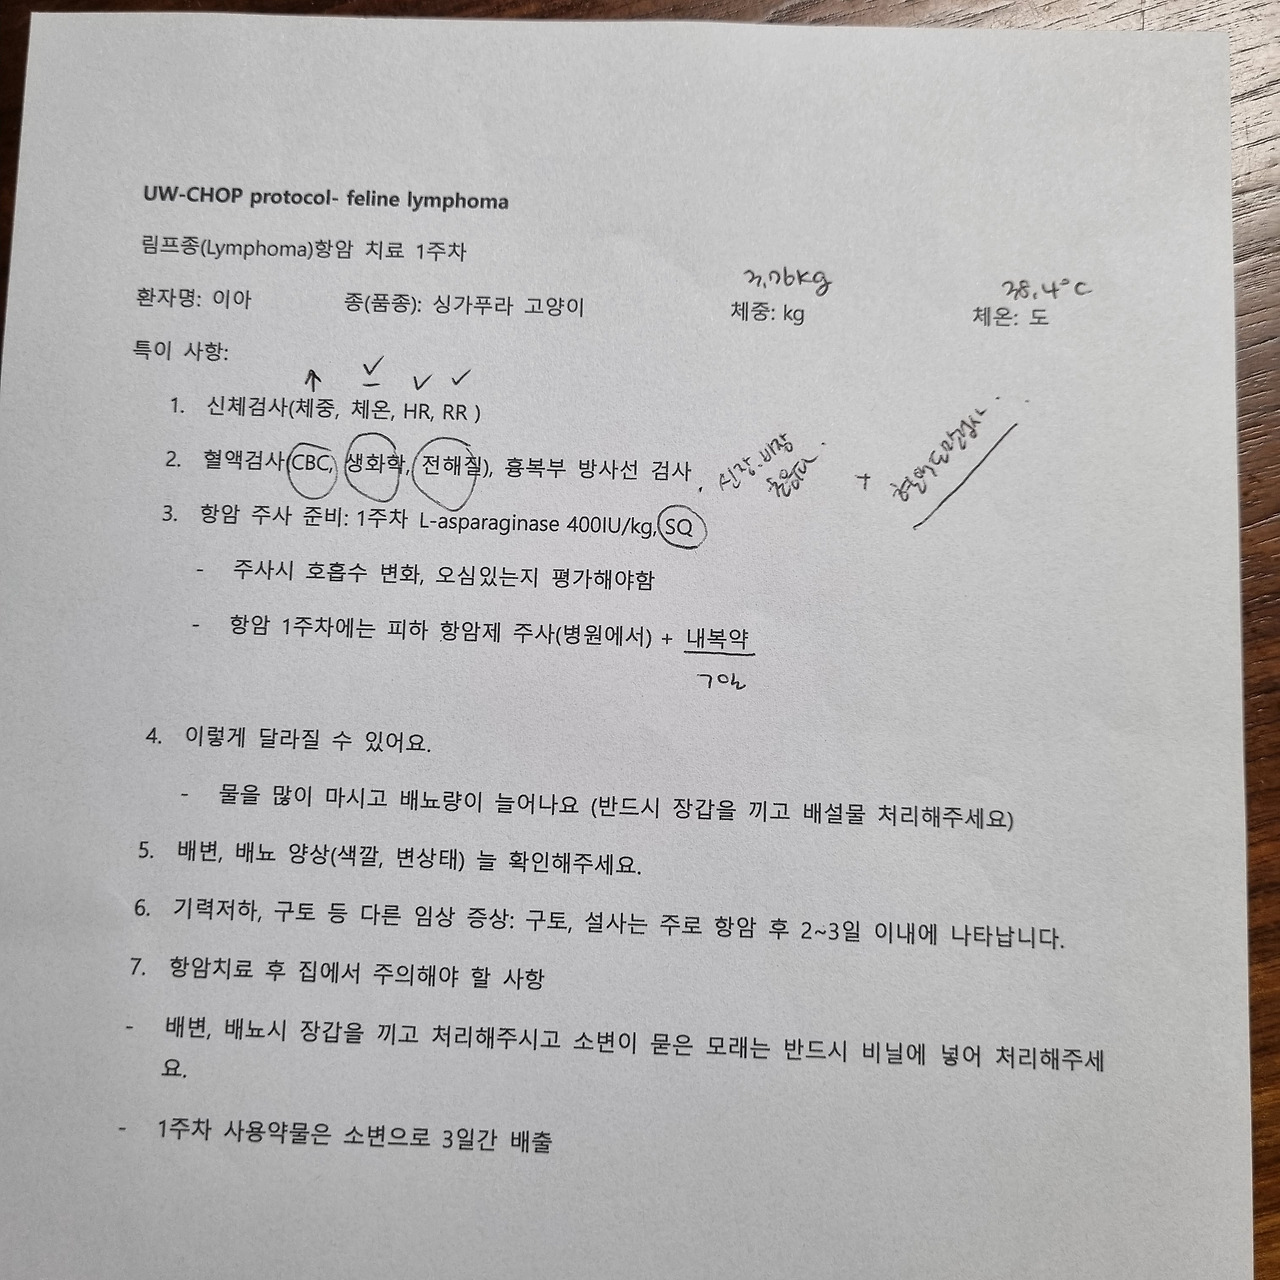 UW-CHOP protocol- feline lymphoma
림프종(Lymphoma)항암 치료 1주차
3.76kg 38.4°C
환자명: 이아 종(품종): 싱가푸라 고양이 체중: kg 체온: 도
특이 사항:
1. 신체검사(체중, 체온, HR, RR )
2. 혈액검사(CBC, 생화학, 전해질), 흉복부 방사선 검사, 신장.비장 + 혈액도말검사
3. 항암 주사 준비: 1주차 L-asparaginase 400IU/kg, SQ
- 주사시 호흡수 변화, 오심있는지 평가해야함
- 항암 1주차에는 피하 항암제 주사(병원에서) + 내복약
7일
4. 이렇게 달라질 수 있어요.
- 물을 많이 마시고 배뇨량이 늘어나요 (반드시 장갑을 끼고 배설물 처리해주세요)
5. 배변, 배뇨 양상(색깔, 변상태) 늘 확인해주세요.
6. 기력저하, 구토 등 다른 임상 증상: 구토, 설사는 주로 항암 후 2~3일 이내에 나타납니다.
7. 항암치료 후 집에서 주의해야 할 사항
- 배변, 배뇨시 장갑을 끼고 처리해주시고 소변이 묻은 모래는 반드시 비닐에 넣어 처리해주세
요.
- 1주차 사용약물은 소변으로 3일간 배출